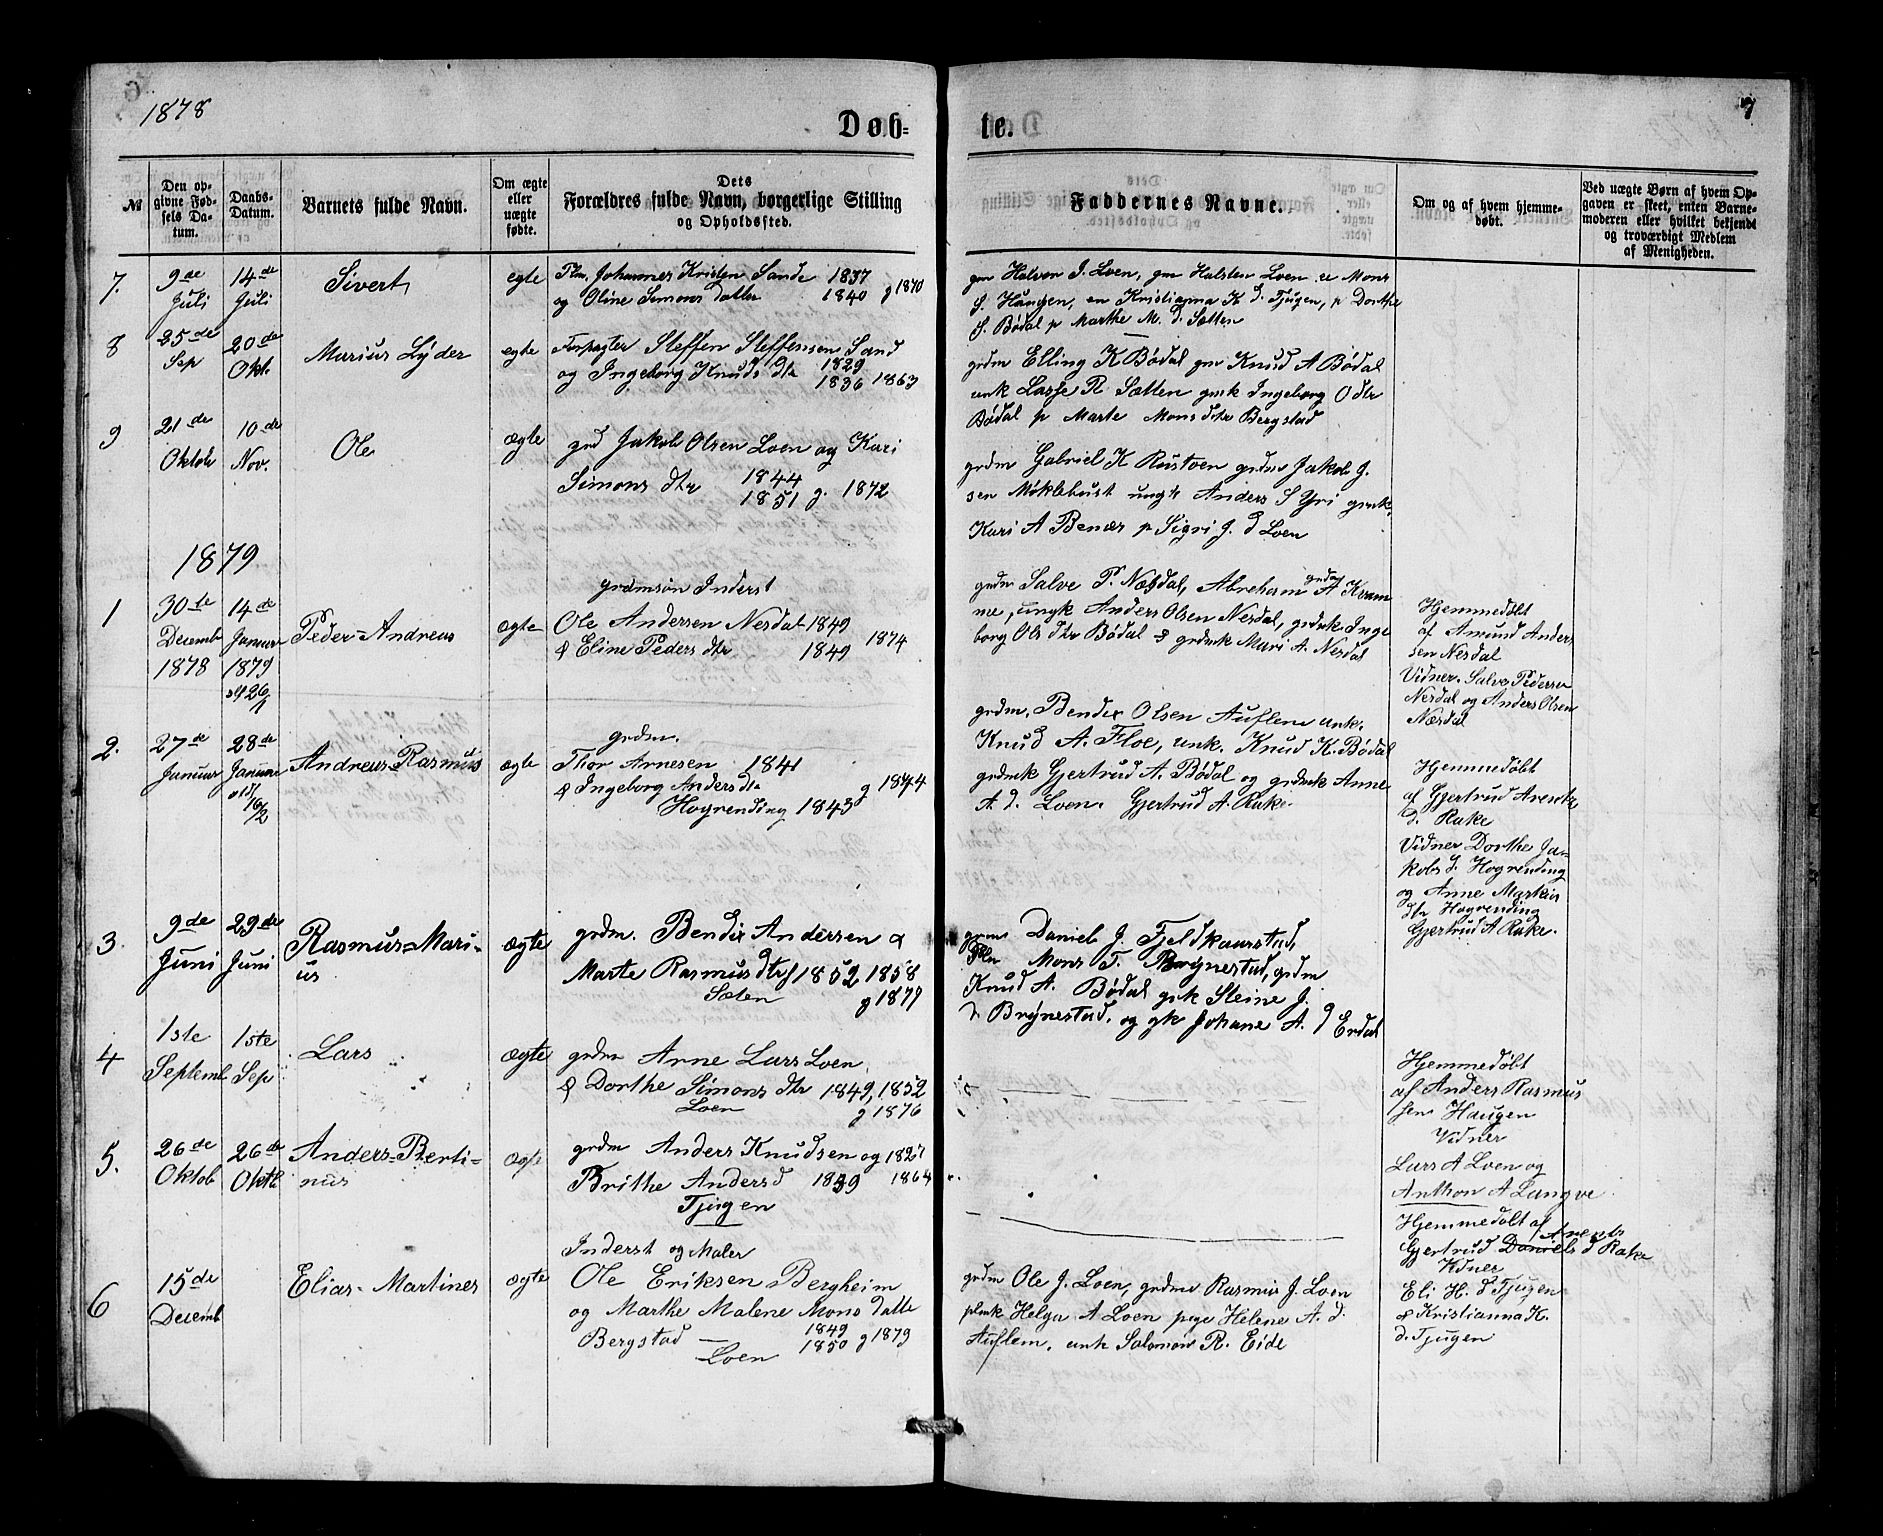 1878
Døb-
te.
7
№
Den op-
givne Fød-
sels Da-
tum.
Daabs-
Datum.
Barnets fulde Navn.
Om ægte
eller
uægte
fødte.
Dets
Forældres fulde Navn, borgerlige Stilling
og Opholdssted.
Faddernes Navne.
Om og af hvem hjemme-
døbt.
Ved uægte Børn af hvem Op-
gaven er skeet, enten Barne-
moderen eller hvilket bekjendt
og troværdigt Medlem
af Menigheden.
7.
9de
Juli
14de
Juli
Sivert
egte
Plm. Johannes Kristen Sande 1837
og Oline Simons datter 1840 g 1870
gm Halvor J. Loen, gm Halsten Loen ee Mons
S. Haugen, en Kristianna K d. Tjugen, p Dorthe
S. Bødal p Marthe M. d. Sætten
8
25de
Sep
20de
Okt.
Marius Lyder
egte
Forpagter Steffen Steffensen Sand
og Ingeborg Knuds dtr 1829
1836 1863
grdm Elling K Bødal gm Knud A Bødal
unk Lasse R. Sætten gmk Ingeborg O dtr
Bødal p Marte Mons dtr Bergstad
9
21de
Oktob
10de
Nov.
Ole
ægte
grd Jakob Olsen Loen og Kari
Simons dtr 1844
1851 g. 1872
grdm Gabriel K Rustøen grdm Jakob J.
sen Møklebust ungk Anders S Yri grmk.
Kari A Benær p Sigri J. d Loen
1879
1
30te
Decemb
1878
14de
Januar
1879
26/1
Peder-Andreas
ægte
grdmsøn Inderst
Ole Andersen Nesdal 1849
& Eline Peders dtr 1849 1874
grdm Salve P. Næsdal, Abreham grdm A Kram-
me, ungk Anders Olsen Nesdal, grdmk Inge
borg Ols dtr Bødal & grdmk Mari A. Nesdal
Hjemmedøbt
af Amund Anders
sen Nesdal
Vidner. Salve Pedersen
Nesdal og Anders Olsen
Næsdal
2.
27de
Januar
28de
Januar
16/2
Andreas-Rasmus
ægte
grdm.
Thor Arnesen 1841
& Ingeborg Anders dtr g 1874
Hogrending 1843
grdm. Bendix Olsen Auflem unk.
Knud A. Floe, unk. Knud K. Bødal
grdmk Gjertrud A. Bødal og grdmk Anne
A. d. Loen. Gjertrud A. Rake.
Hjemmedøbt
af Gjertrud Arents
d. Rake
Vidner Dorthe Ja-
kobs d. Hogrending
og Anne Markus
dtr Hogrending
Gjertrud A Rake.
3.
9de
Juni
29de
Juni
Rasmus-Mari-
us
ægte
grdm. Bendix Andersen &
Marte Rasmus dtr 1852, 1858
Sæten g 1879
grdm Daniel J. Fjeldkaarstad,
Plm Mons T. Brynestad, grdm
Knud A. Bødal gmk Steine J.
d. Brynestad, og gk Johane A. d Erdal
4
1ste
Septemb
1ste
Sep
Lars
ægte
grdm Arne Lars Loen
& Dorthe Simons dtr 1849, 1852
Loen g 1876
Hjemmedøbt
af Anders Rasmus
sen Haugen
Vidner
Lars A Loen og
Anthon A Langve
5.
26de
Oktob
26de
Oktb
Anders-Berti-
nus
Ægte
grdm Anders Knudsen og 1827
Brithe Anders d 1839 1864
Tjugen
Hjemmedøbt af
Gjertrud Daniels Arents d Rake
Vidner
Eli H. d Tjugen
& Kristianna K.
d. Tjugen
6
15de
Decemb
Elias-Martines
ægte
Inderst og Maler
Ole Eriksen Bergheim
og Marthe Malene Mons datte
Bergstad — 1849
Loen 1850 g 1879
grdm Ole J. Loen, grdm Rasmus J. Loen
plmk Helga A Loen pige Helene A. d.
Auflem, unk Salomon R. Eide